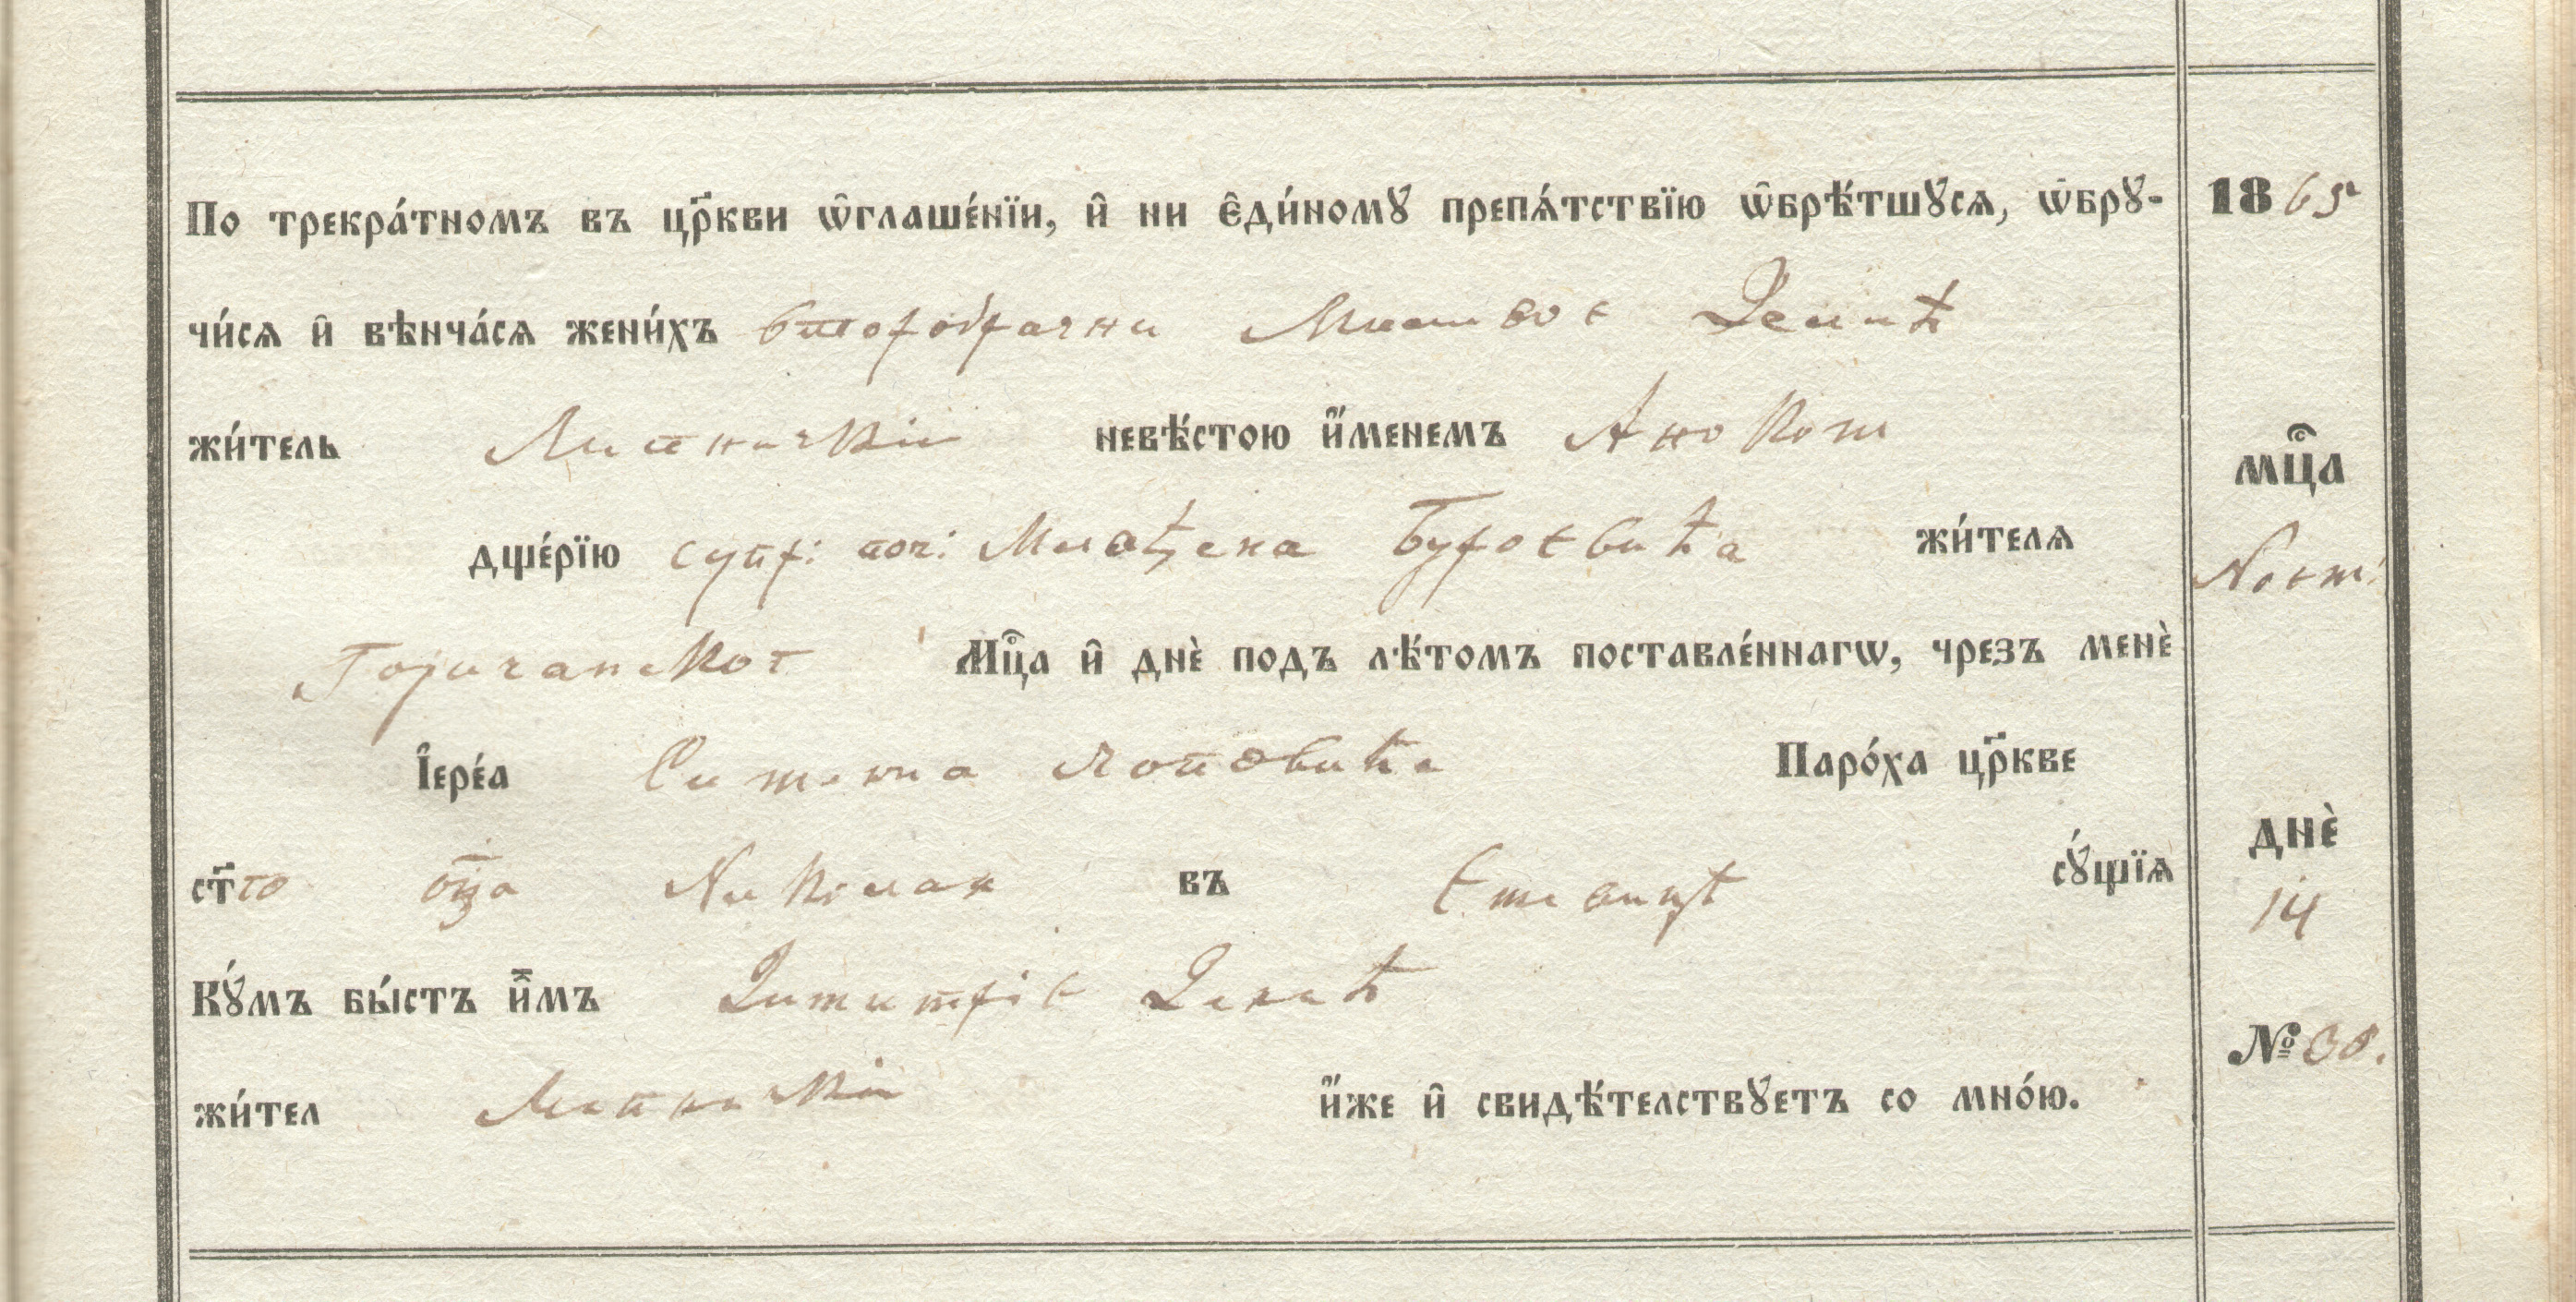 По трекра́тномъ въ цр҃кви ѡ҆глаше́нїи, и҆ ни є҆ди́номꙋ препѧ́тствїю ѡ҆брѣ́тшꙋсѧ, ѡ҆брꙋ- 1865
чи́сѧ и҆ вѣнча́сѧ жени́хъ второбрачни Миливое Демић
жи́тель Липничкїи невѣ́стою и҆́менемъ Аноком
мц҇а
дщє́рїю супр: поч: Милоѣена Ђуроевића жи́телѧ
Ноем:
Горичанског Мц҇а и҆ днѐ подъ лѣ́томъ поставле́ннагѡ, чрезъ менѐ
І҆ере́а Симеона Поповића Паро́ха цр҃кве
днѐ
ст҃го ѿца Николаа въ сꙋ́щїѧ
14
Кꙋ́мъ бы́стъ и҆̀мъ Димитріе Декић
№ 38.
жи́тел Липничкїи и҆́же и҆ свидѣ́телствꙋетъ со мно́ю.